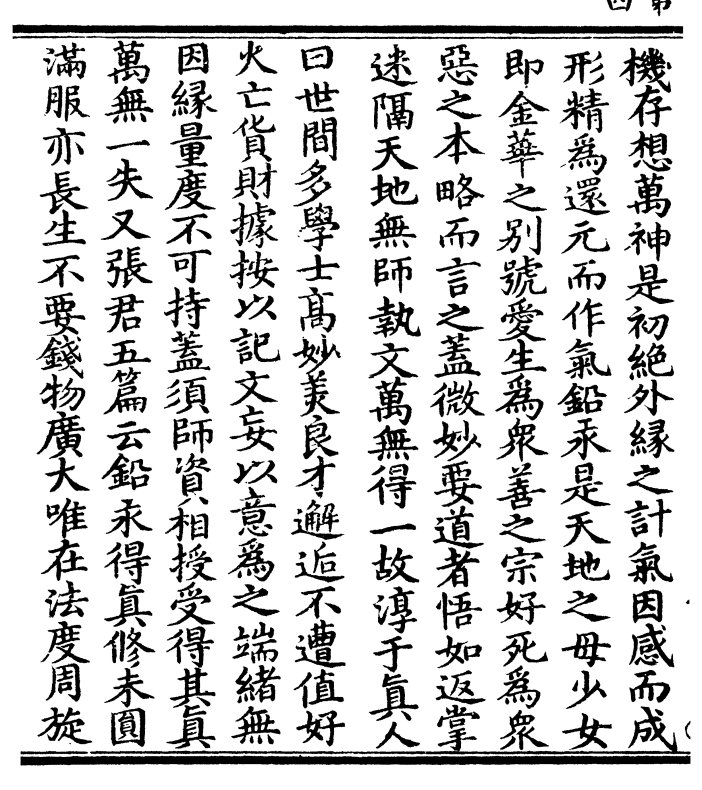 機存想萬神是初絕外緣之計氣因感而成
形精爲還元而作氣鉛汞是天地之母少女
即金華之别號愛生爲衆善之宗好死爲衆
惡之本略而言之蓋微妙要道者悟如返掌
迷隔天地無師執文萬無得一故淳于眞人
曰世間多學士高妙美良才邂逅不遭值好
火亡貨財據按以記文妄以意爲之端緒無
因緣量度不可持蓋須師資相授受得其眞
萬無一失又張君五篇云鉛汞得眞修未圓
滿服亦長生不要錢物廣大唯在法度周旋